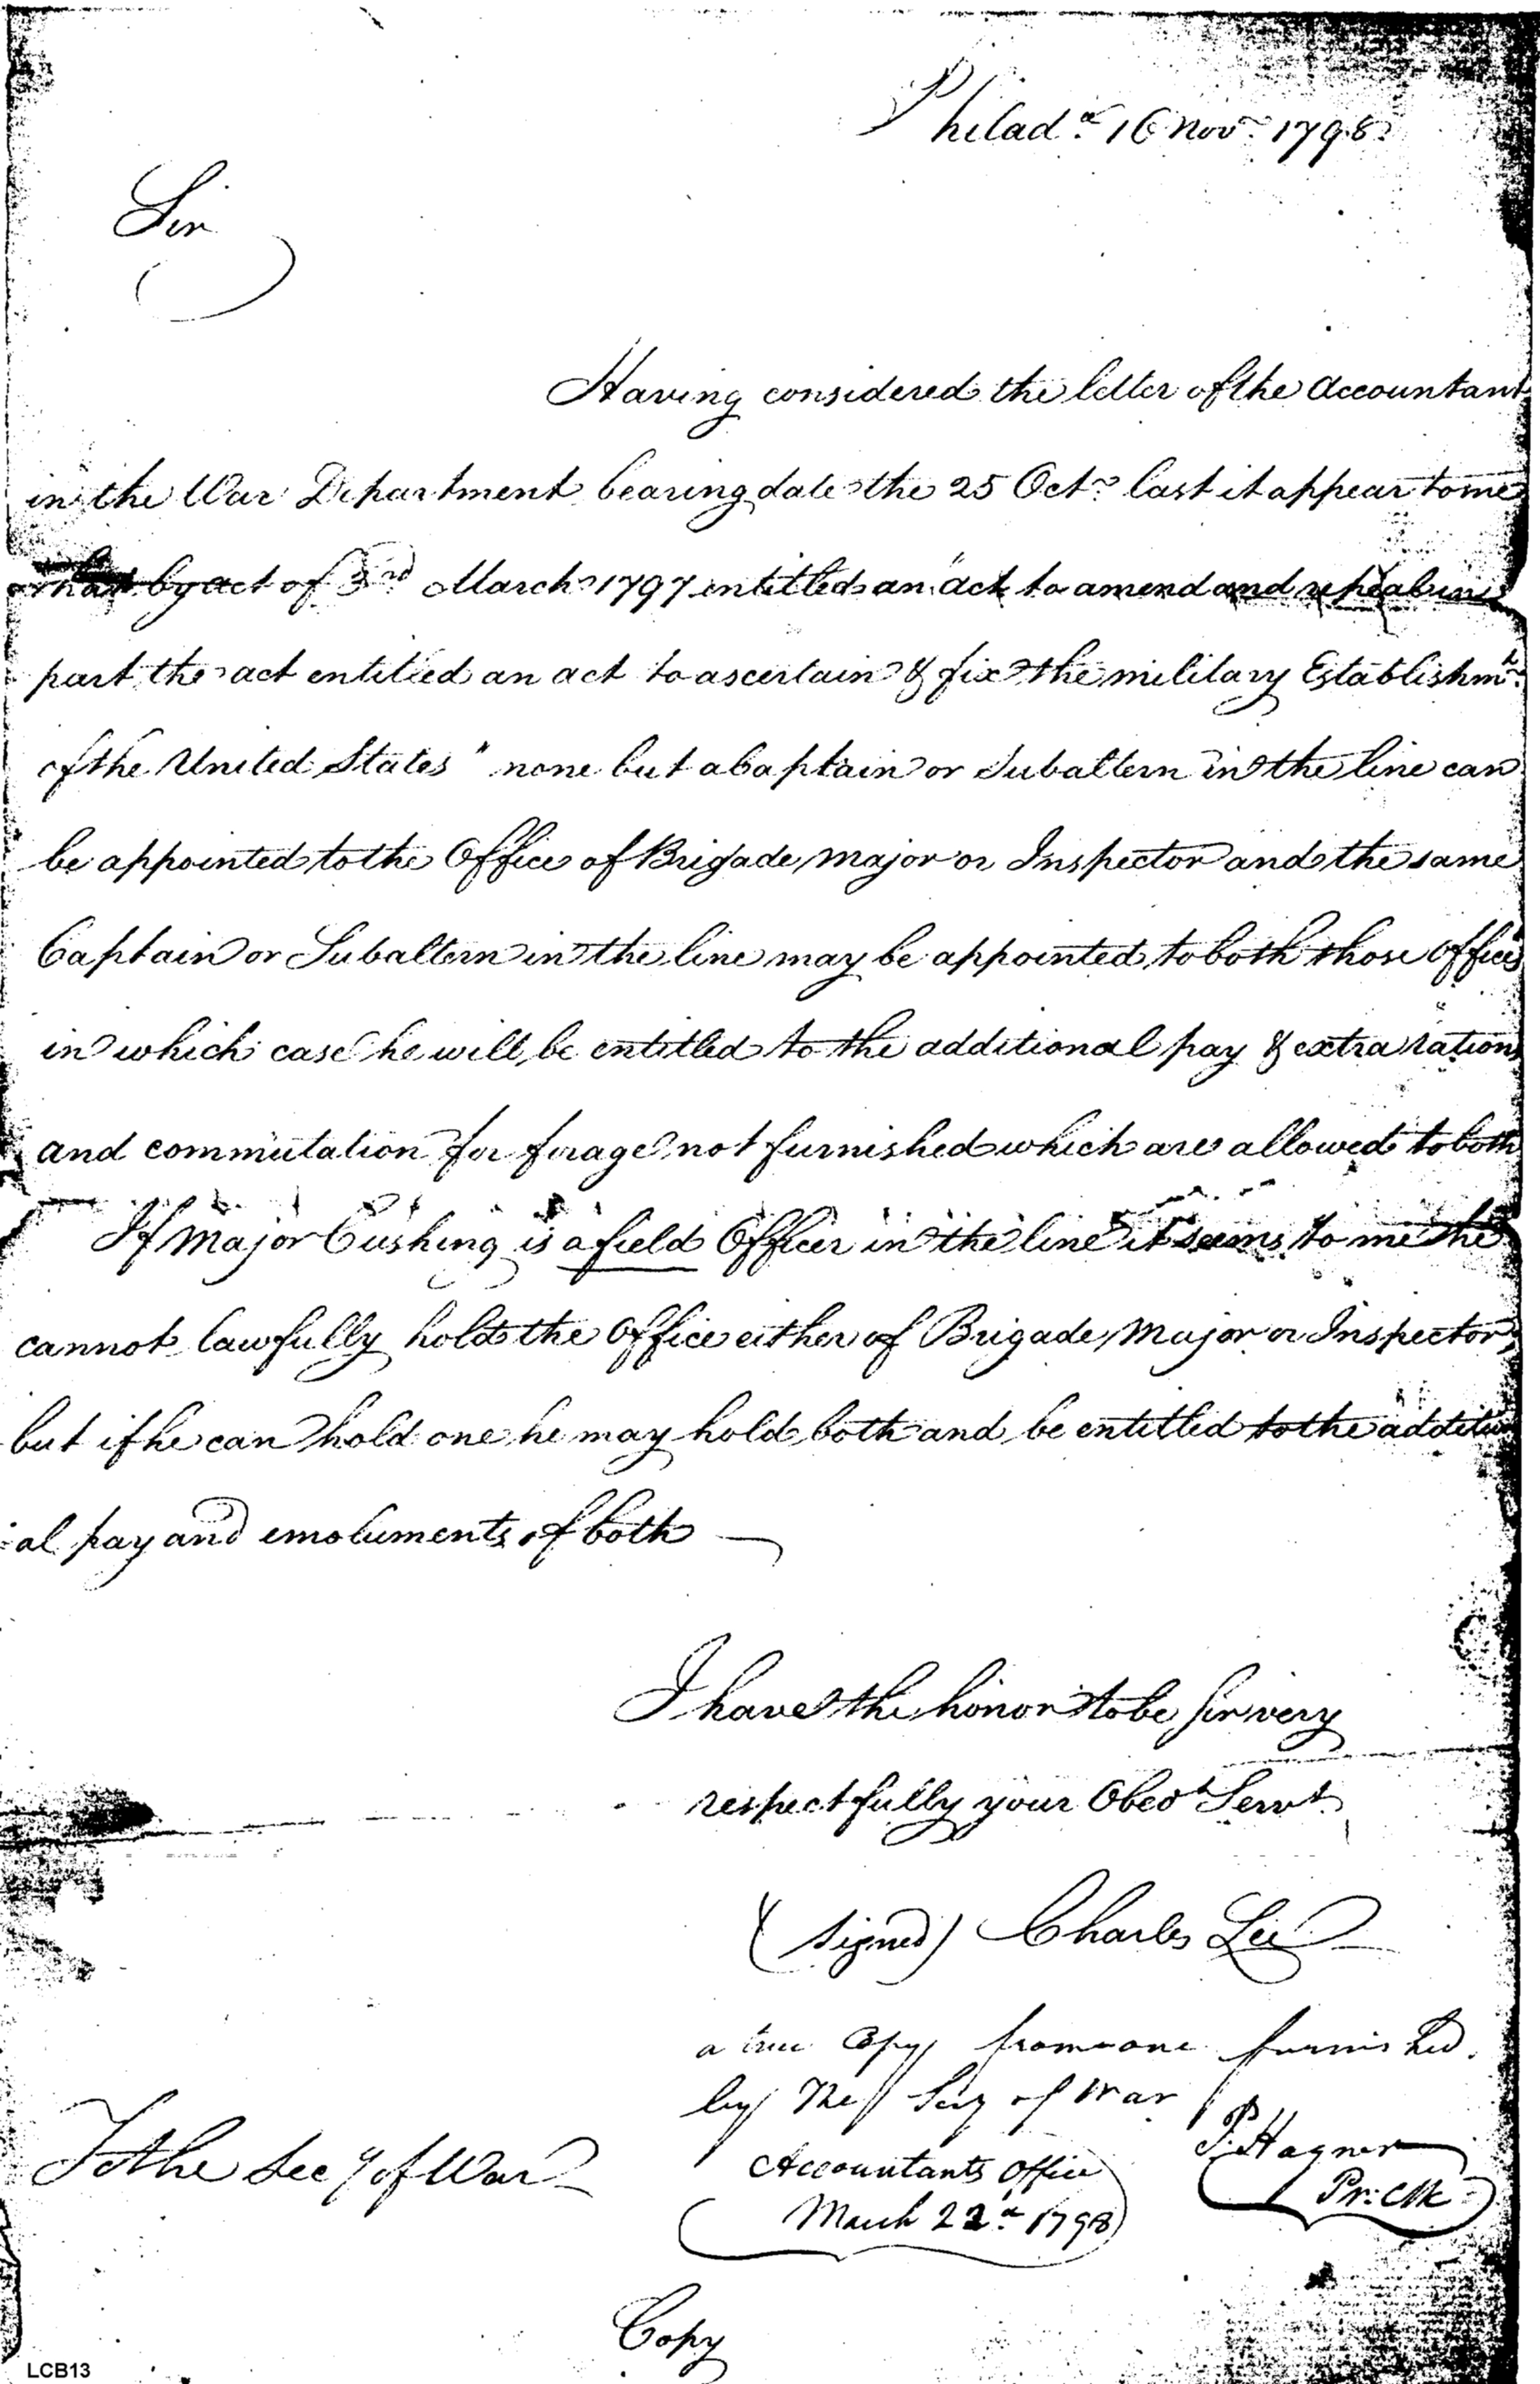 Philad.a 16 Nov.r 1798
Sir
Having considered the letter of the Accountant
in the War Department bearing date the 25 Oct.r last it appear to me
that by act of 3rd March 1797 entitled an "act to amend and repeal in
part the act entitled an act to ascertain & fix the military Establishm.t
of the United States" none but a Captain or Subaltern in the line can
be appointed to the Office of Brigade Major or Inspector and the same
Captain or Subaltern in the line may be appointed to both those Offices
in which case he will be entitled to the additional pay & extra rations
and commutation for forage not furnished which are allowed to both
If Major Cushing is a field Officer in the line it seems to me he
cannot lawfully hold the Office either of Brigade Major or Inspector,
but if he can hold one he may hold both and be entitled to the addition
:al pay and emoluments of both —
I have the honor to be Sir very
respectfully your Obedt Servt.
(signed) Charles Lee
a true Copy from one furnished
by The Secy of War
P. Hagner
Pr: Clk
Accountants Office
March 22.d 1798
To the Secy of War
Copy
LCB13